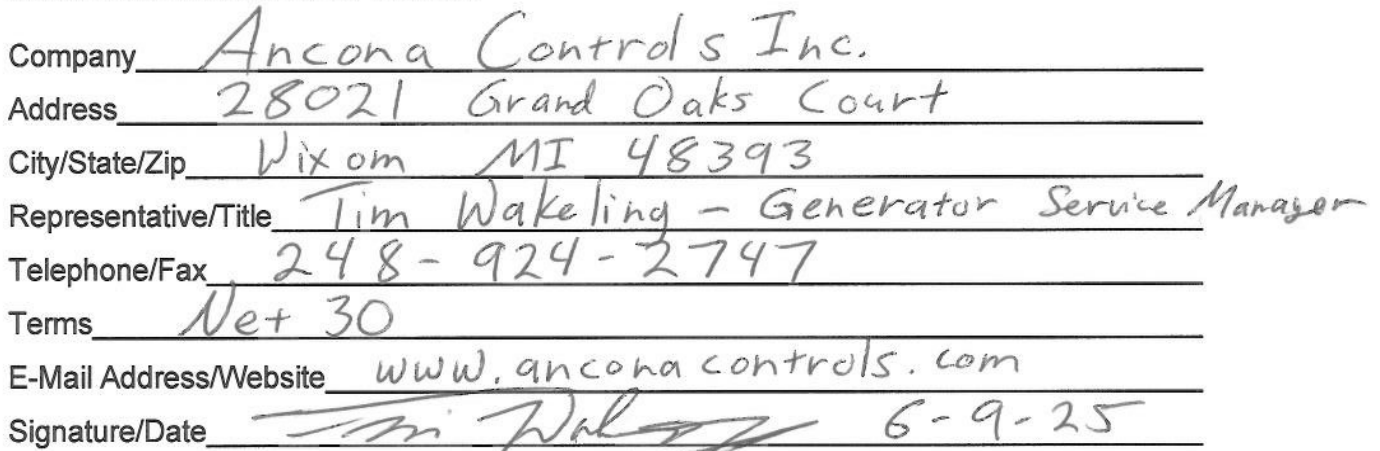 Company Ancona Controls Inc.
Address 28021 Grand Oaks Court
City/State/Zip Wixom MI 48393
Representative/Title Tim Wakeling - Generator Service Manager
Telephone/Fax 248-924-2747
Terms Net 30
E-Mail Address/Website www.anconacontrols.com
Signature/Date Tim Wakeling 6-9-25